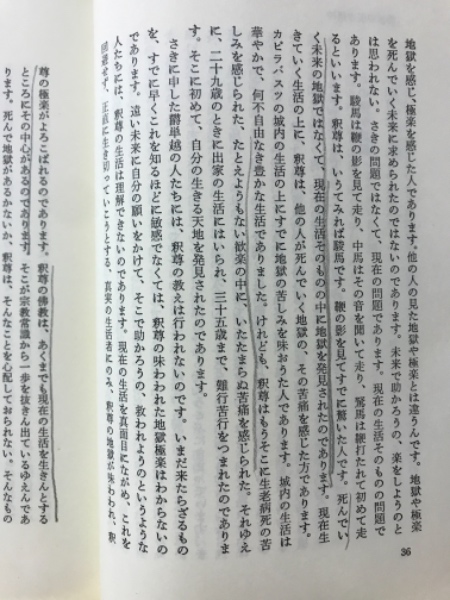 地獄を感じ、極楽を感じた人であります。他の人の見た地獄や極楽とは違うんです。地獄や極楽
を死んでいく未来に求められたのではないのであります。未来で助かろうの、楽をしようのと
は思われない。さきの問題ではなくて、現在の問題であります。現在の生活そのものの問題で
あります。駿馬は鞭の影を見て走り、中馬はその音を聞いて走り、駑馬は鞭打たれて初めて走
るといいます。釈尊は、いうてみれば駿馬です。鞭の影を見てすでに驚いた人です。死んでい
く未来の地獄ではなくて、現在の生活そのものの中に地獄を発見されたのであります。現在生
きていく生活の上に、釈尊は、他の人が死んでいく地獄の、その苦痛を感じた方であります。
カピラバスツの城内の生活の上にすでに地獄の苦しみを味おうた人であります。城内の生活は
華やかで、何不自由なき豊かな生活でありました。けれども、釈尊はもうそこに生老病死の苦
しみを感じられた、たとえようもない歓楽の中に、いたたまらぬ苦痛を感じられた。それゆえ
に、二十九歳のときに出家の生活にはいられ、三十五歳まで、難行苦行をつまれたのでありま
す。そこに初めて、自分の生きる天地を発見されたのであります。
さきに申した欝単越の人たちには、釈尊の教えは行われないのです。いまだ来たらざるもの
を、すでに早くこれを知るほどに敏感でなくては、釈尊の味わわれた地獄極楽はわからないの
であります。遠い未来に自分の願いをかけて、そこで助かろうの、救われようのというような
人たちには、釈尊の生活は理解できないのであります。現在の生活を真面目にながめ、これを
回避せず、正直に生き切っていこうとする、真実の生活者にのみ、釈尊の地獄が味わわれ、釈
尊の極楽がよろこばれるのであります。釈尊の佛教は、あくまでも現在の生活を生きんとする
ところにその中心があるのであります。そこが宗教常識から一歩を抜きん出ているゆえんであ
ります。死んで地獄があるかないか、釈尊は、そんなことを心配しておられない。そんなもの
36